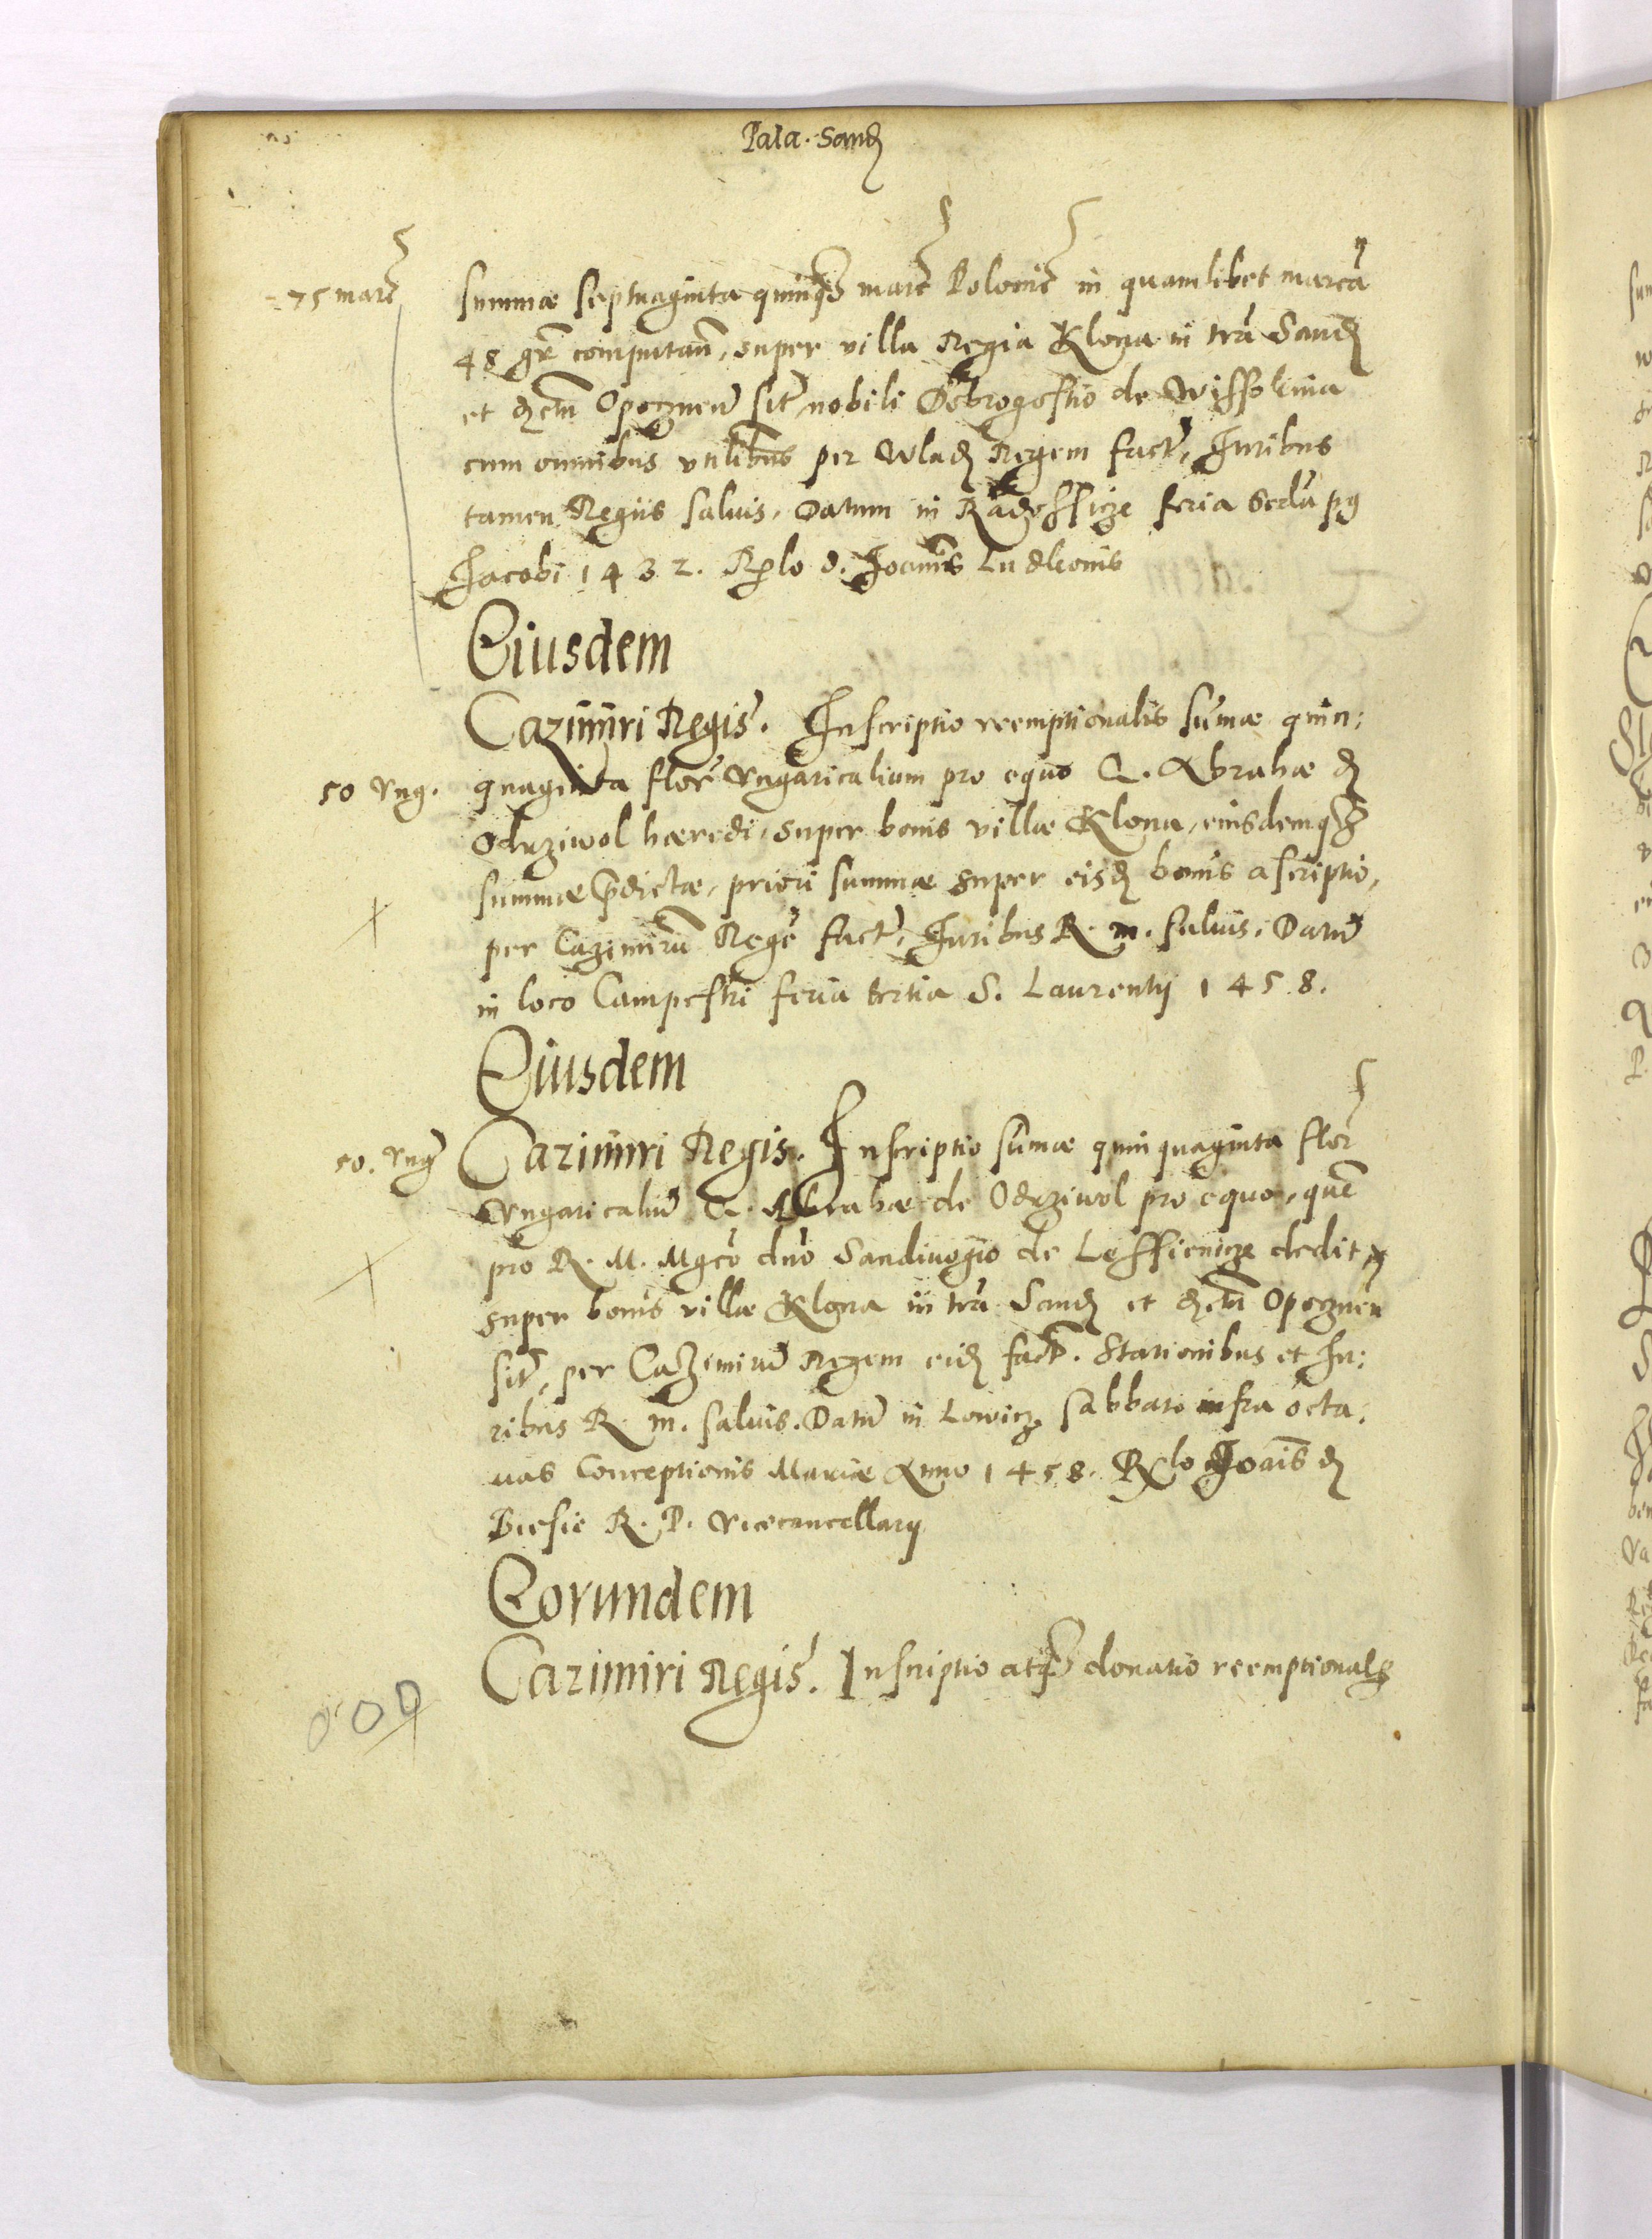 Pala. Sand
75 marc
summæ septuaginta quinq marc Polonic in quamlibet marcā
48 gr computan, super villa Regia Klona in trā Sand
et dctu Opocznen sit nobili Dobrogostio de Wissolcina
cum omnibus vtilibus per Wlad Regem fact, Iuribus
tamen Regiis saluis, Datum in Radossicze feria Scda
Iacobi 1432. Rlo d. Ioannis
Eiusdem
Cazimiri Regis. Inscriptio reemptionalis sumæ quin:
50 Vng. quaginta flor Vngaricalium pro equo G. Abrahæ d
Odrziwol hæredi, super bonis villæ Klona, eiusdemq
summæ prdictæ, priori summæ super eisd bonis ascriptio,
per Cazimirū Regē fact, Iuribus R. M. saluis, Datū
in loco Campestri feria tertia S. Laurentij 1458.
Eiusdem
50. Vng Cazimiri Regis. Inscriptio sumæ quinquaginta flor
Vngaricaliū G. Abrahæ de Odrziwol pro equo, quē
pro R. M. Mgco dno Sandiuogio de Lessienicze dedit
super bonis villæ Klona in trā Sand et dctu Opocznen
sit, per Cazimirū Regem eid fact. Stationibus et Iu:
ribus R. M. saluis. Datū in Lowicz Sabbato infra octa:
uas Conceptionis Mariæ Anno 1458. Rlo Ioānis d
R. P. Vicecancellarij
Eorundem
Cazimiri Regis. Inscriptio atq donatio reemptional